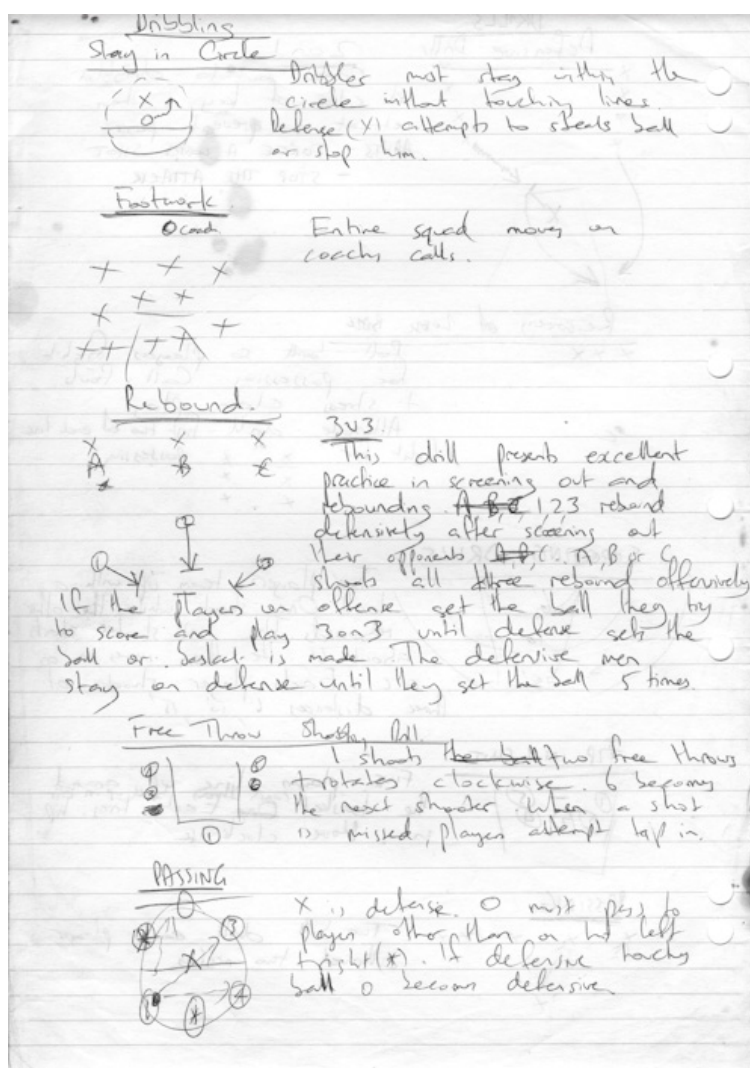 Dribbling
Stay in Circle
Dribbler must stay within the
circle without touching lines.
X
O
Defense (X) attempts to steals ball
or stop him.
Footwork.
O coach
Entire squad moves on
coachs calls.
+ + x
x + + +
++ / + A
Rebound.
3v3
X X X
A B C
This drill presents excellent
practice in screening out and
rebounding. A B C 1,23 rebound
defensively after screening out
their opponents A,B,C. A,B or C
shoots all three rebound offensively
If the players on offense get the ball they try
to score and play 3 on 3 until defense gets the
ball or basket is made The defensive men
stay on defense until they get the ball 5 times.
Free Throw Shooting Drill.
1 shoots the ball two free throws
+ rotates clockwise. 6 becomes
the next shooter. When a shot
1
is missed, players attempt tap in.
PASSING
X is defense. O must pass to
3
player other than on his left
X
+ right (*). If defensive touches
1 * 4
ball O becomes defensive.